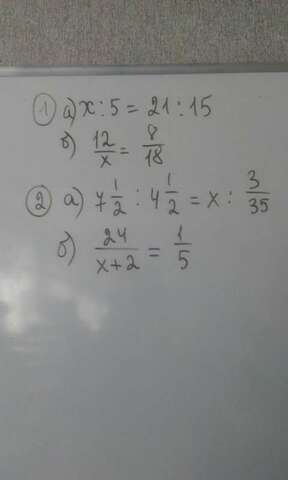 ① а) x : 5 = 21 : 15
б) 12/x = 8/18
② а) 7 1/2 : 4 1/2 = x : 3/35
б) 24/(x+2) = 1/5